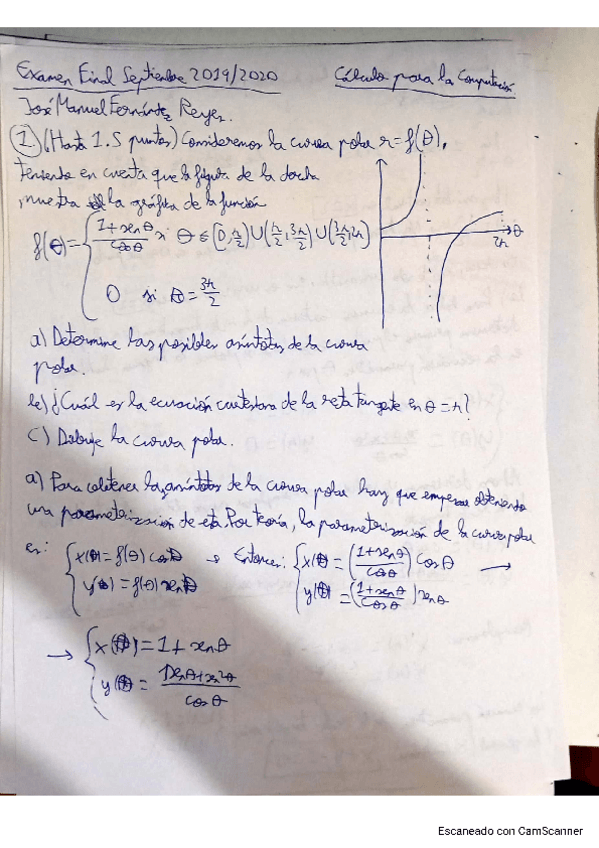 Examen Final Septiembre 2019/2020 Cálculo para la Computación
José Manuel Fernández Reyes.
① (Hasta 1.5 puntos) Consideremos la curva polar r=f(θ),
teniendo en cuenta que la figura de la derecha
muestra la gráfica de la función
f(θ)= { (1+senθ)/cosθ si θ ∈ [0,π/2)∪(π/2,3π/2)∪(3π/2,2π]
0 si θ=3π/2
θ
2π
a) Determine las posibles asíntotas de la curva
polar.
b) ¿Cuál es la ecuación cartesiana de la reta tangente en θ=π?
c) Dibuje la curva polar.
a) Para obtener las asíntotas de la curva polar hay que empezar obteniendo
una parametrización de esta. Por teoría, la parametrización de la curva polar
es: { x(θ)=f(θ)cosθ → Entonces: { x(θ)=((1+senθ)/cosθ)cosθ →
y(θ)=f(θ)senθ y(θ)=((1+senθ)/cosθ)senθ
→ { x(θ)=1+senθ
y(θ)= (senθ+sen²θ)/cosθ
Escaneado con CamScanner